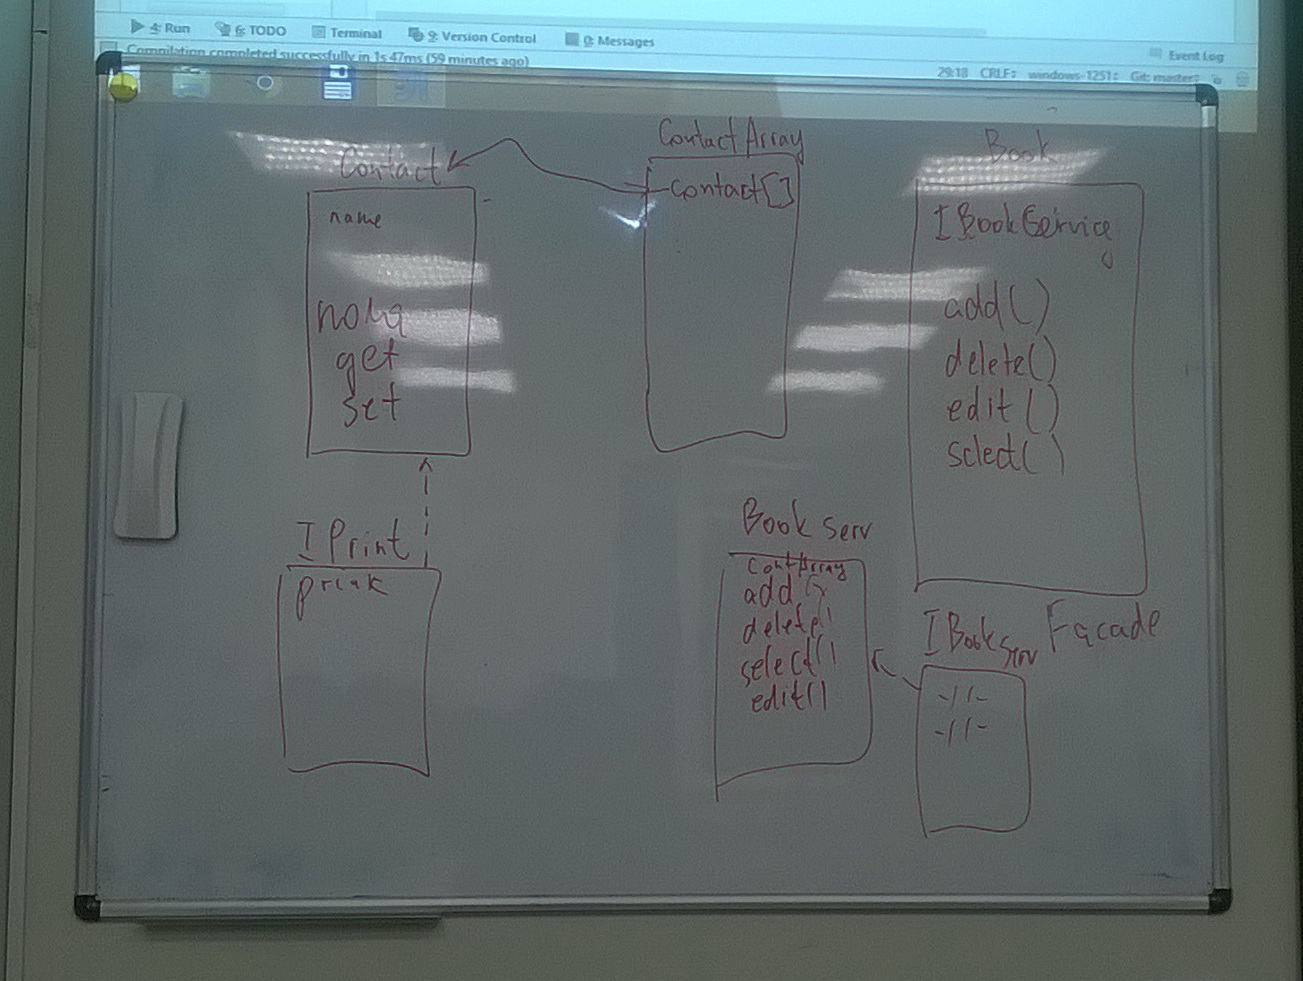 4: Run
6: TODO
Terminal
9: Version Control
0: Messages
Event Log
Compilation completed successfully in 1s 47ms (59 minutes ago)
29:18 CRLF÷ windows-1251÷ Git: master÷
Contact
name
get
set
ContactArray
contact[]
Book
IBookService
add()
delete()
edit()
select()
IPrint
Book Serv
ContArray
add()
delete()
select()
edit()
IBookServ Facade
-//-
-//-